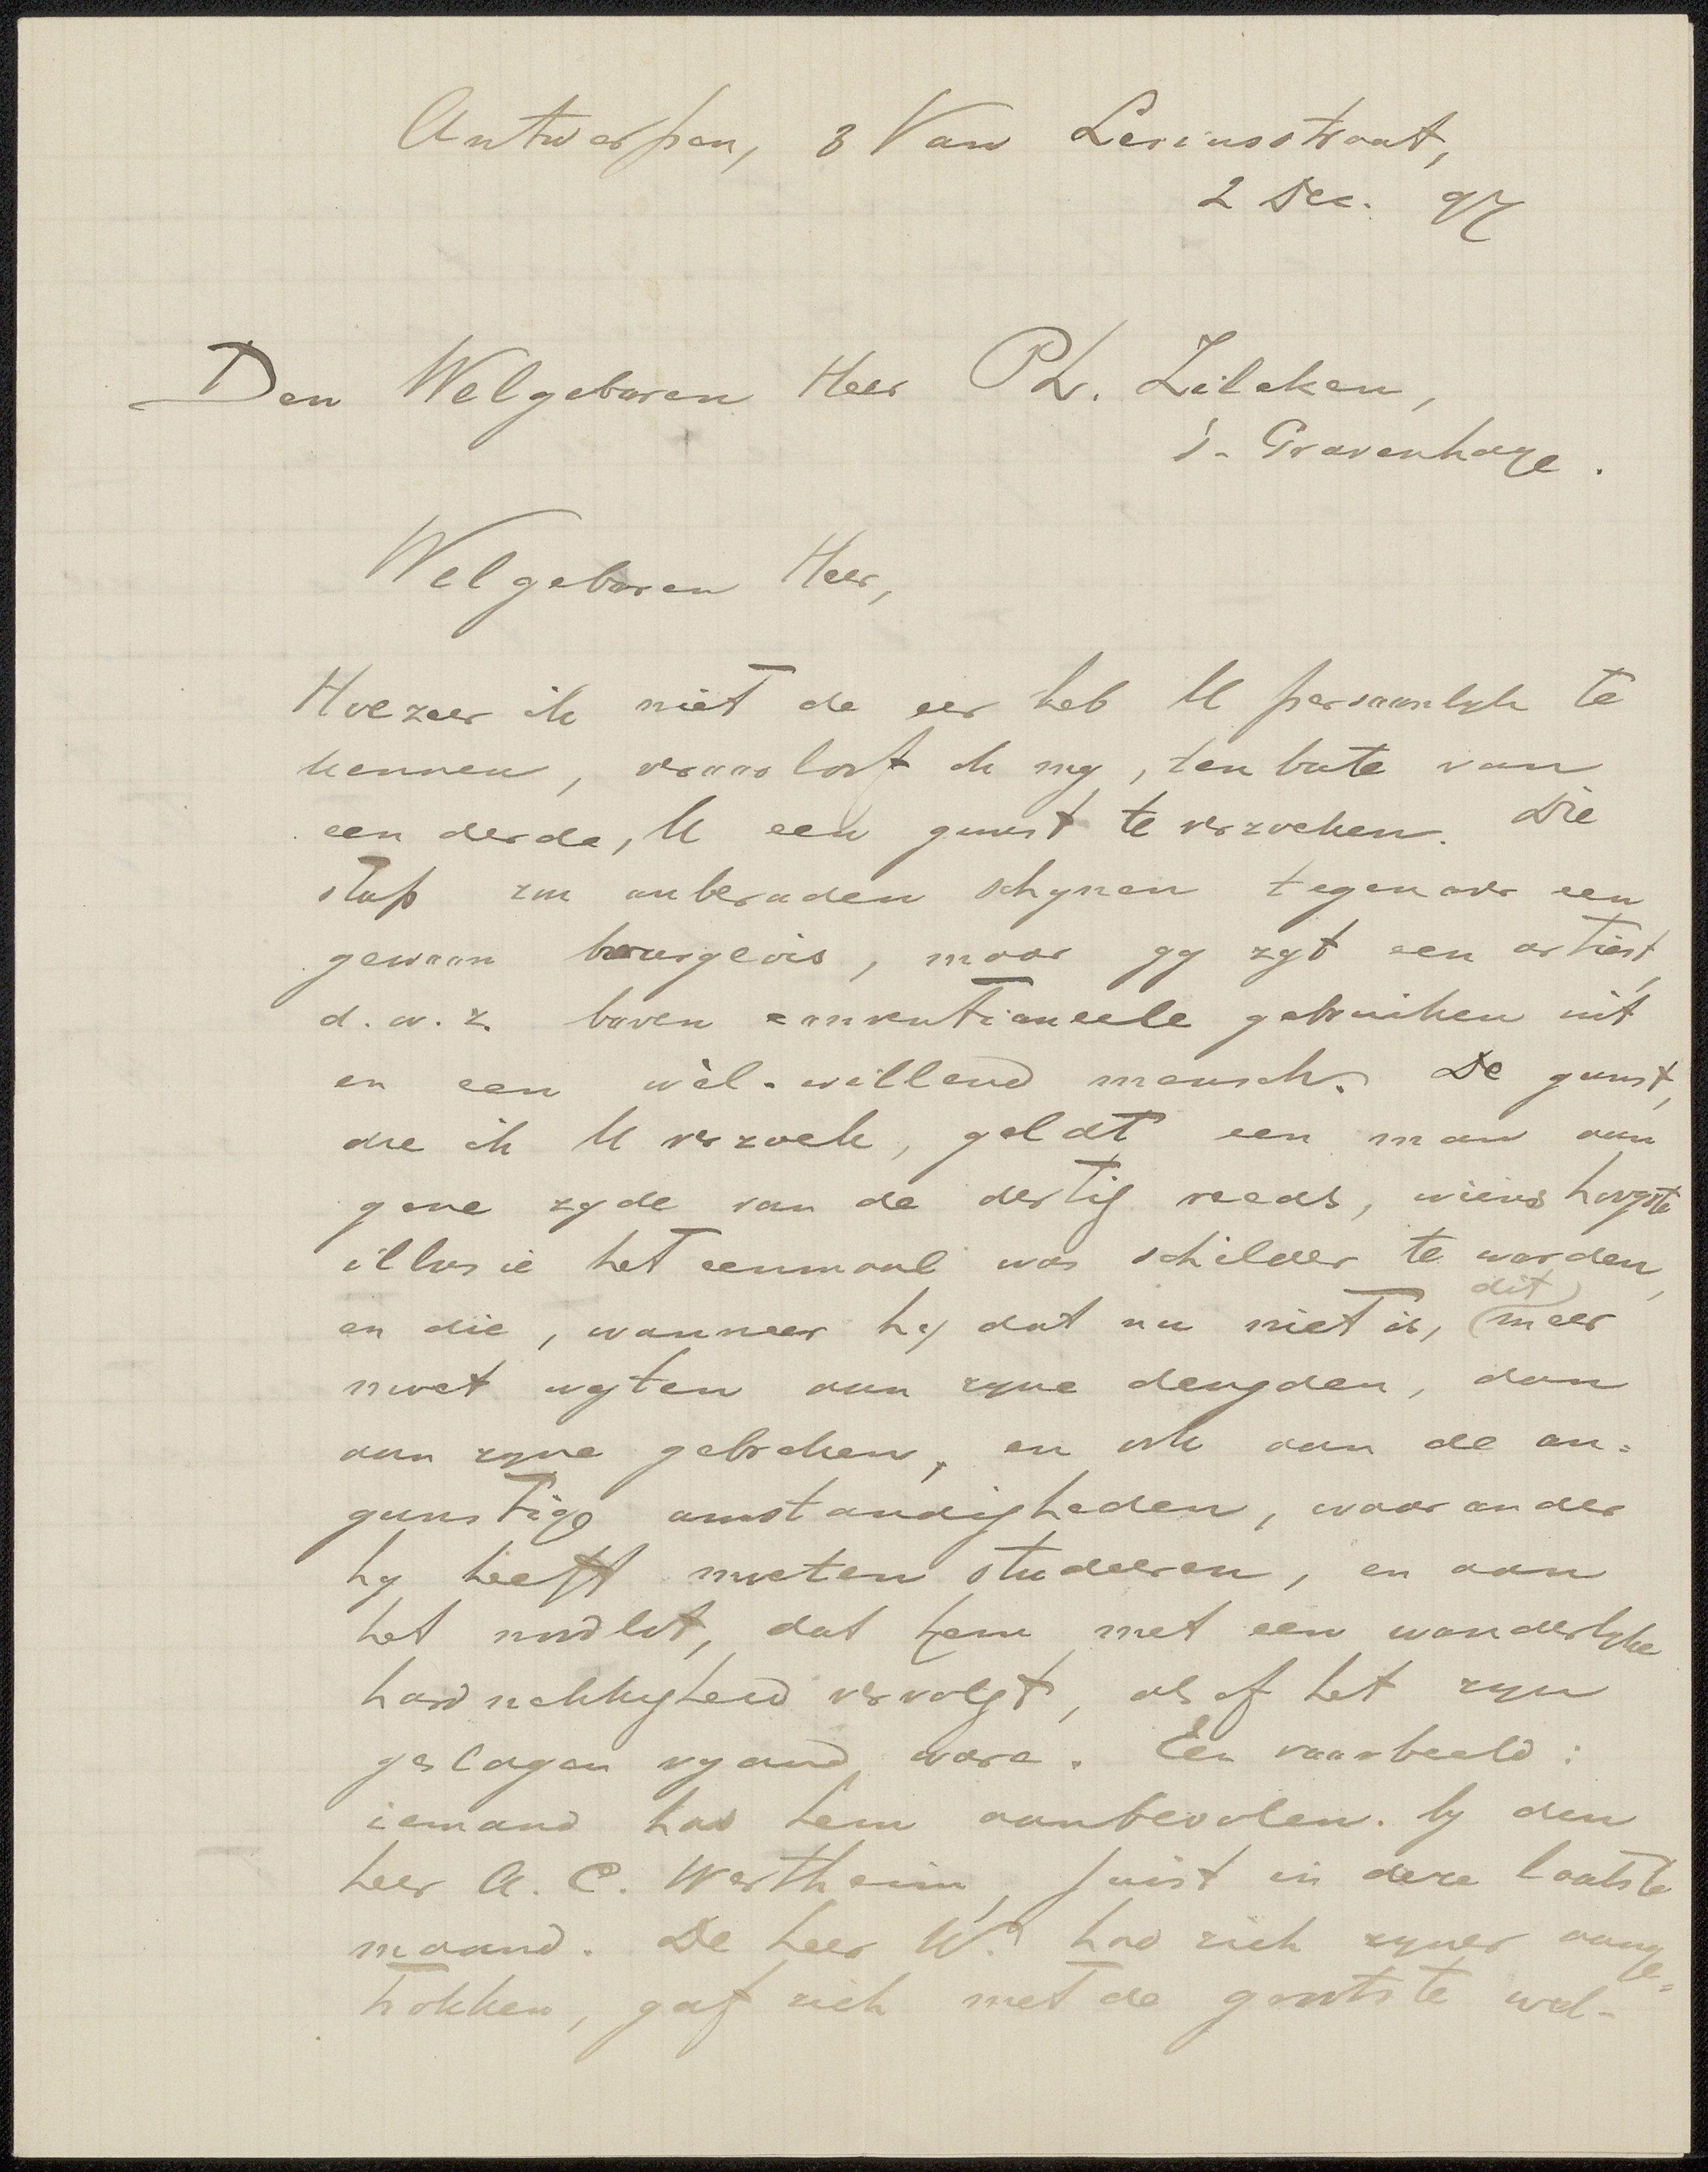 Antwerpen, 3 Van Leriusstraat,
2 Dec. 97
Den Welgeboren Heer Ph. Zilcken,
's-Gravenhage.
Welgeboren Heer,
Hoezeer ik niet de eer heb U persoonlyk te
kennen, veroorloof ik my, ten bate van
een derde, U een gunst te verzoeken. Die
stap zou onberaden schynen tegenover een
gewoon bourgeois, maar gy zyt een artiest,
d.w.z. boven conventioneele gebruiken uit
en een wèl-willend mensch. De gunst,
die ik U verzoek, geldt een man aan
gene zyde van de dertig reeds, wiens hoogste
illusie het eenmaal was schilder te worden,
en die, wanneer hy dat nu niet is, dit meer
moet wyten aan zyne deugden, dan
aan zyne gebreken, en ook aan de on-
gunstige omstandigheden, waaronder
hy heeft moeten studeeren, en aan
het noodlot, dat hem met een wonderlyke
hardnekkigheid vervolgt, als of het zyn
geslagen vyand ware. Een voorbeeld:
iemand had hem aanbevolen by den
heer A. C. Wertheim, juist in deze laatste
maand. De heer W. had zich zyner aange-
trokken, gaf zich met de grootste wel-